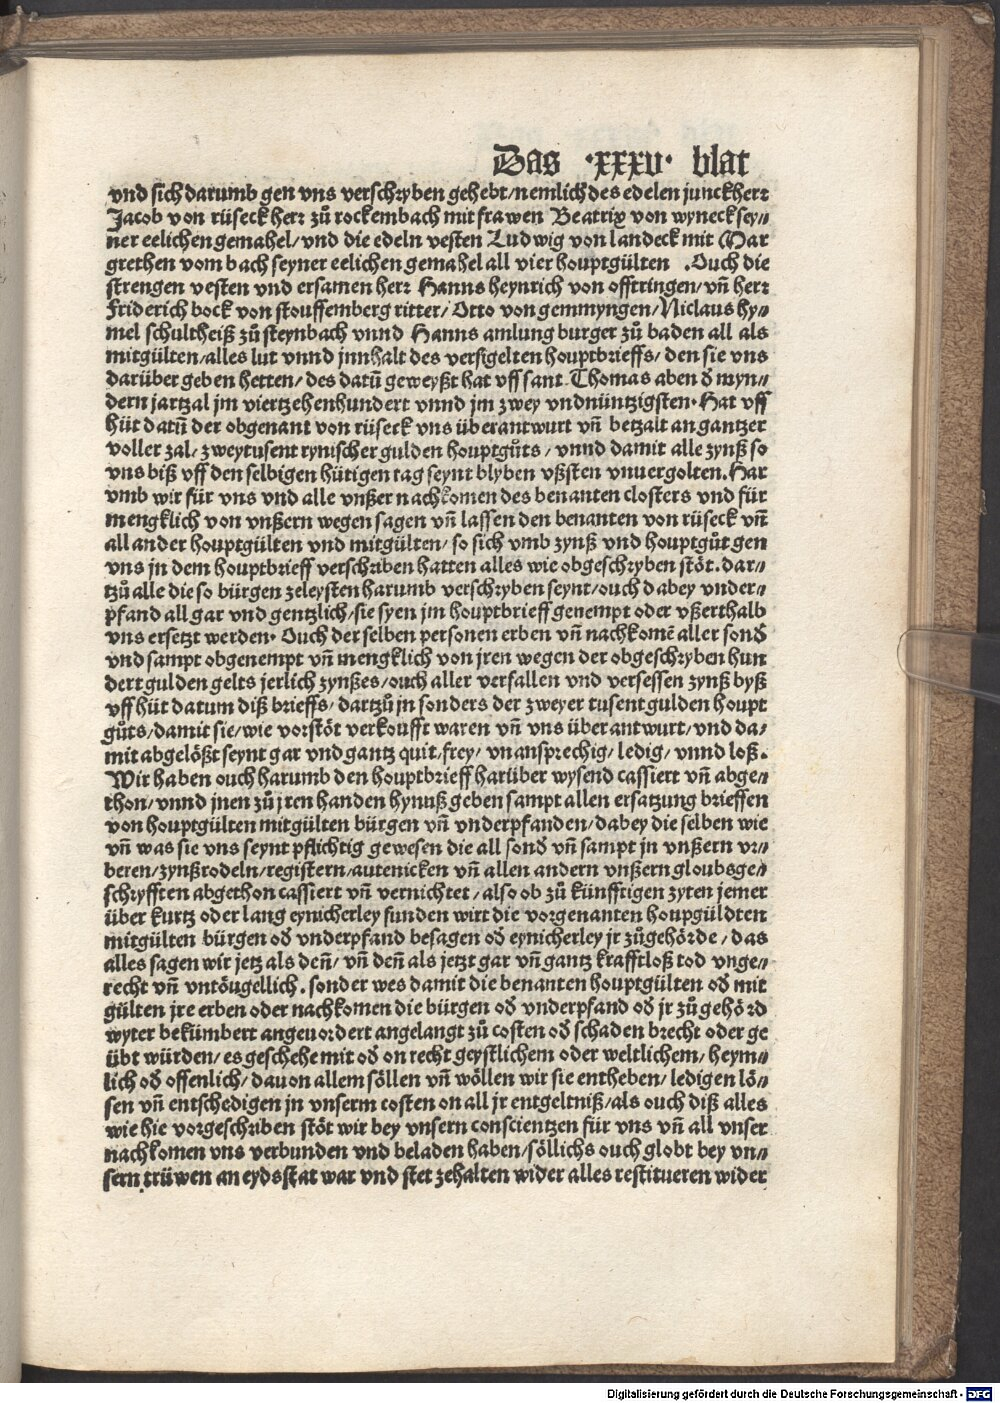 Das ·xxxv· blat
vnd sich darumb gen vns verschryben gehebt/nemlich des edelen junckherr
Jacob von rüseck herr zů rockembach mit frawen Beatrix von wyneck sey⸗
ner eelichen gemahel/vnd die edeln vesten Ludwig von landeck mit Mar
grethen vom bach seyner eelichen gemahel all vier houptgülten . Ouch die
strengen vesten vnd ersamen herr Hanns heynrich von offtringen/vñ herr
Friderich bock von stouffemberg ritter/Otto von gemmyngen/Niclaus hy⸗
mel schultheiß zů steynbach vnnd Hanns amlung burger zů baden all als
mitgülten/alles lut vnnd jnnhalt des versigelten houptbrieffs/den sie vns
darüber geben hetten/des datū geweyßt hat vff sant Thomas aben đ myn⸗
dern jartzal jm viertzehenhundert vnnd jm zwey vndnüntzigsten· Hat vff
hüt datū der obgenant von rüseck vns überantwurt vñ betzalt an gantzer
voller zal/zweytusent rynischer gulden houptgůts/vnnd damit alle zynß so
vns biß vff den selbigen hütigen tag seynt blyben vßsten vnuergolten. Har
vmb wir für vns vnd alle vnßer nachkomen des benanten closters vnd für
mengklich von vnßern wegen sagen vñ lassen den benanten von rüseck vñ
all ander houptgülten vnd mitgülten/so sich vmb zynß vnd houptgůt gen
vns in dem houptbrieff verschriben hatten alles wie obgeschryben stöt. dar⸗
tzů alle die so bürgen zeleysten harumb verschryben seynt/ouch dabey vnder⸗
pfand all gar vnd gentzlich/sie syen jm houptbrieff genempt oder vßerthalb
vns ersetzt werden· Ouch der selben personen erben vñ nachkomē aller sonđ
vnd sampt obgenempt vñ mengklich von jren wegen der obgeschryben hun
dert gulden gelts jerlich zynßes/ouch aller verfallen vnd versessen zynß byß
vff hüt datum diß brieffs/dartzů jn sonders der zweyer tusent gulden houpt
gůts/damit sie/wie vorstöt verkoufft waren vñ vns überantwurt/vnd da⸗
mit abgelößt seynt gar vnd gantz quit/frey/vnansprechig/ledig/vnnd loß.
Wir haben ouch harumb den houptbrieff harüber wysend cassiert vñ abge⸗
thon/vnnd jnen zů jren handen hynuß geben sampt allen ersatzung brieffen
von houptgülten mitgülten bürgen vñ vnderpfanden/dabey die selben wie
vñ was sie vns seynt pflichtig gewesen die all sonđ vñ sampt jn vnßern vr⸗
beren/zynßrodeln/registern/autenicken vñ allen andern vnßern gloubsge⸗
schryfften abgethon cassiert vñ vernichtet/also ob zů künfftigen zyten jemer
über kurtz oder lang eynicherley funden wirt die vorgenanten houpgüldten
mitgülten bürgen ođ vnderpfand besagen ođ eynicherley jr zůgehörde/das
alles sagen wir jetz als deñ/vñ deñ als jetzt gar vñ gantz krafftloß tod vnge⸗
recht vñ vntöugellich. sonder wes damit die benanten houptgülten ođ mit
gülten jre erben oder nachkomen die bürgen ođ vnderpfand ođ jr zůgehörd
wyter bekümbert angeuordert angelangt zů costen ođ schaden brecht oder ge
übt würden/es geschehe mit ođ on recht geystlichem oder weltlichem/heym⸗
lich ođ offenlich/dauon allem söllen vñ wöllen wir sie entheben/ledigen lö⸗
sen vñ entschedigen jn vnserm costen on all jr entgeltniß/als ouch diß alles
wie hie vorgeschriben stöt wir bey vnsern conscientzen für vns vñ all vnser
nachkomen vns verbunden vnd beladen haben/söllichs ouch globt bey vn⸗
sern trüwen an eydsstat war vnd stet zehalten wider alles restitueren wider
Digitalisierung gefördert durch die Deutsche Forschungsgemeinschaft - DFG